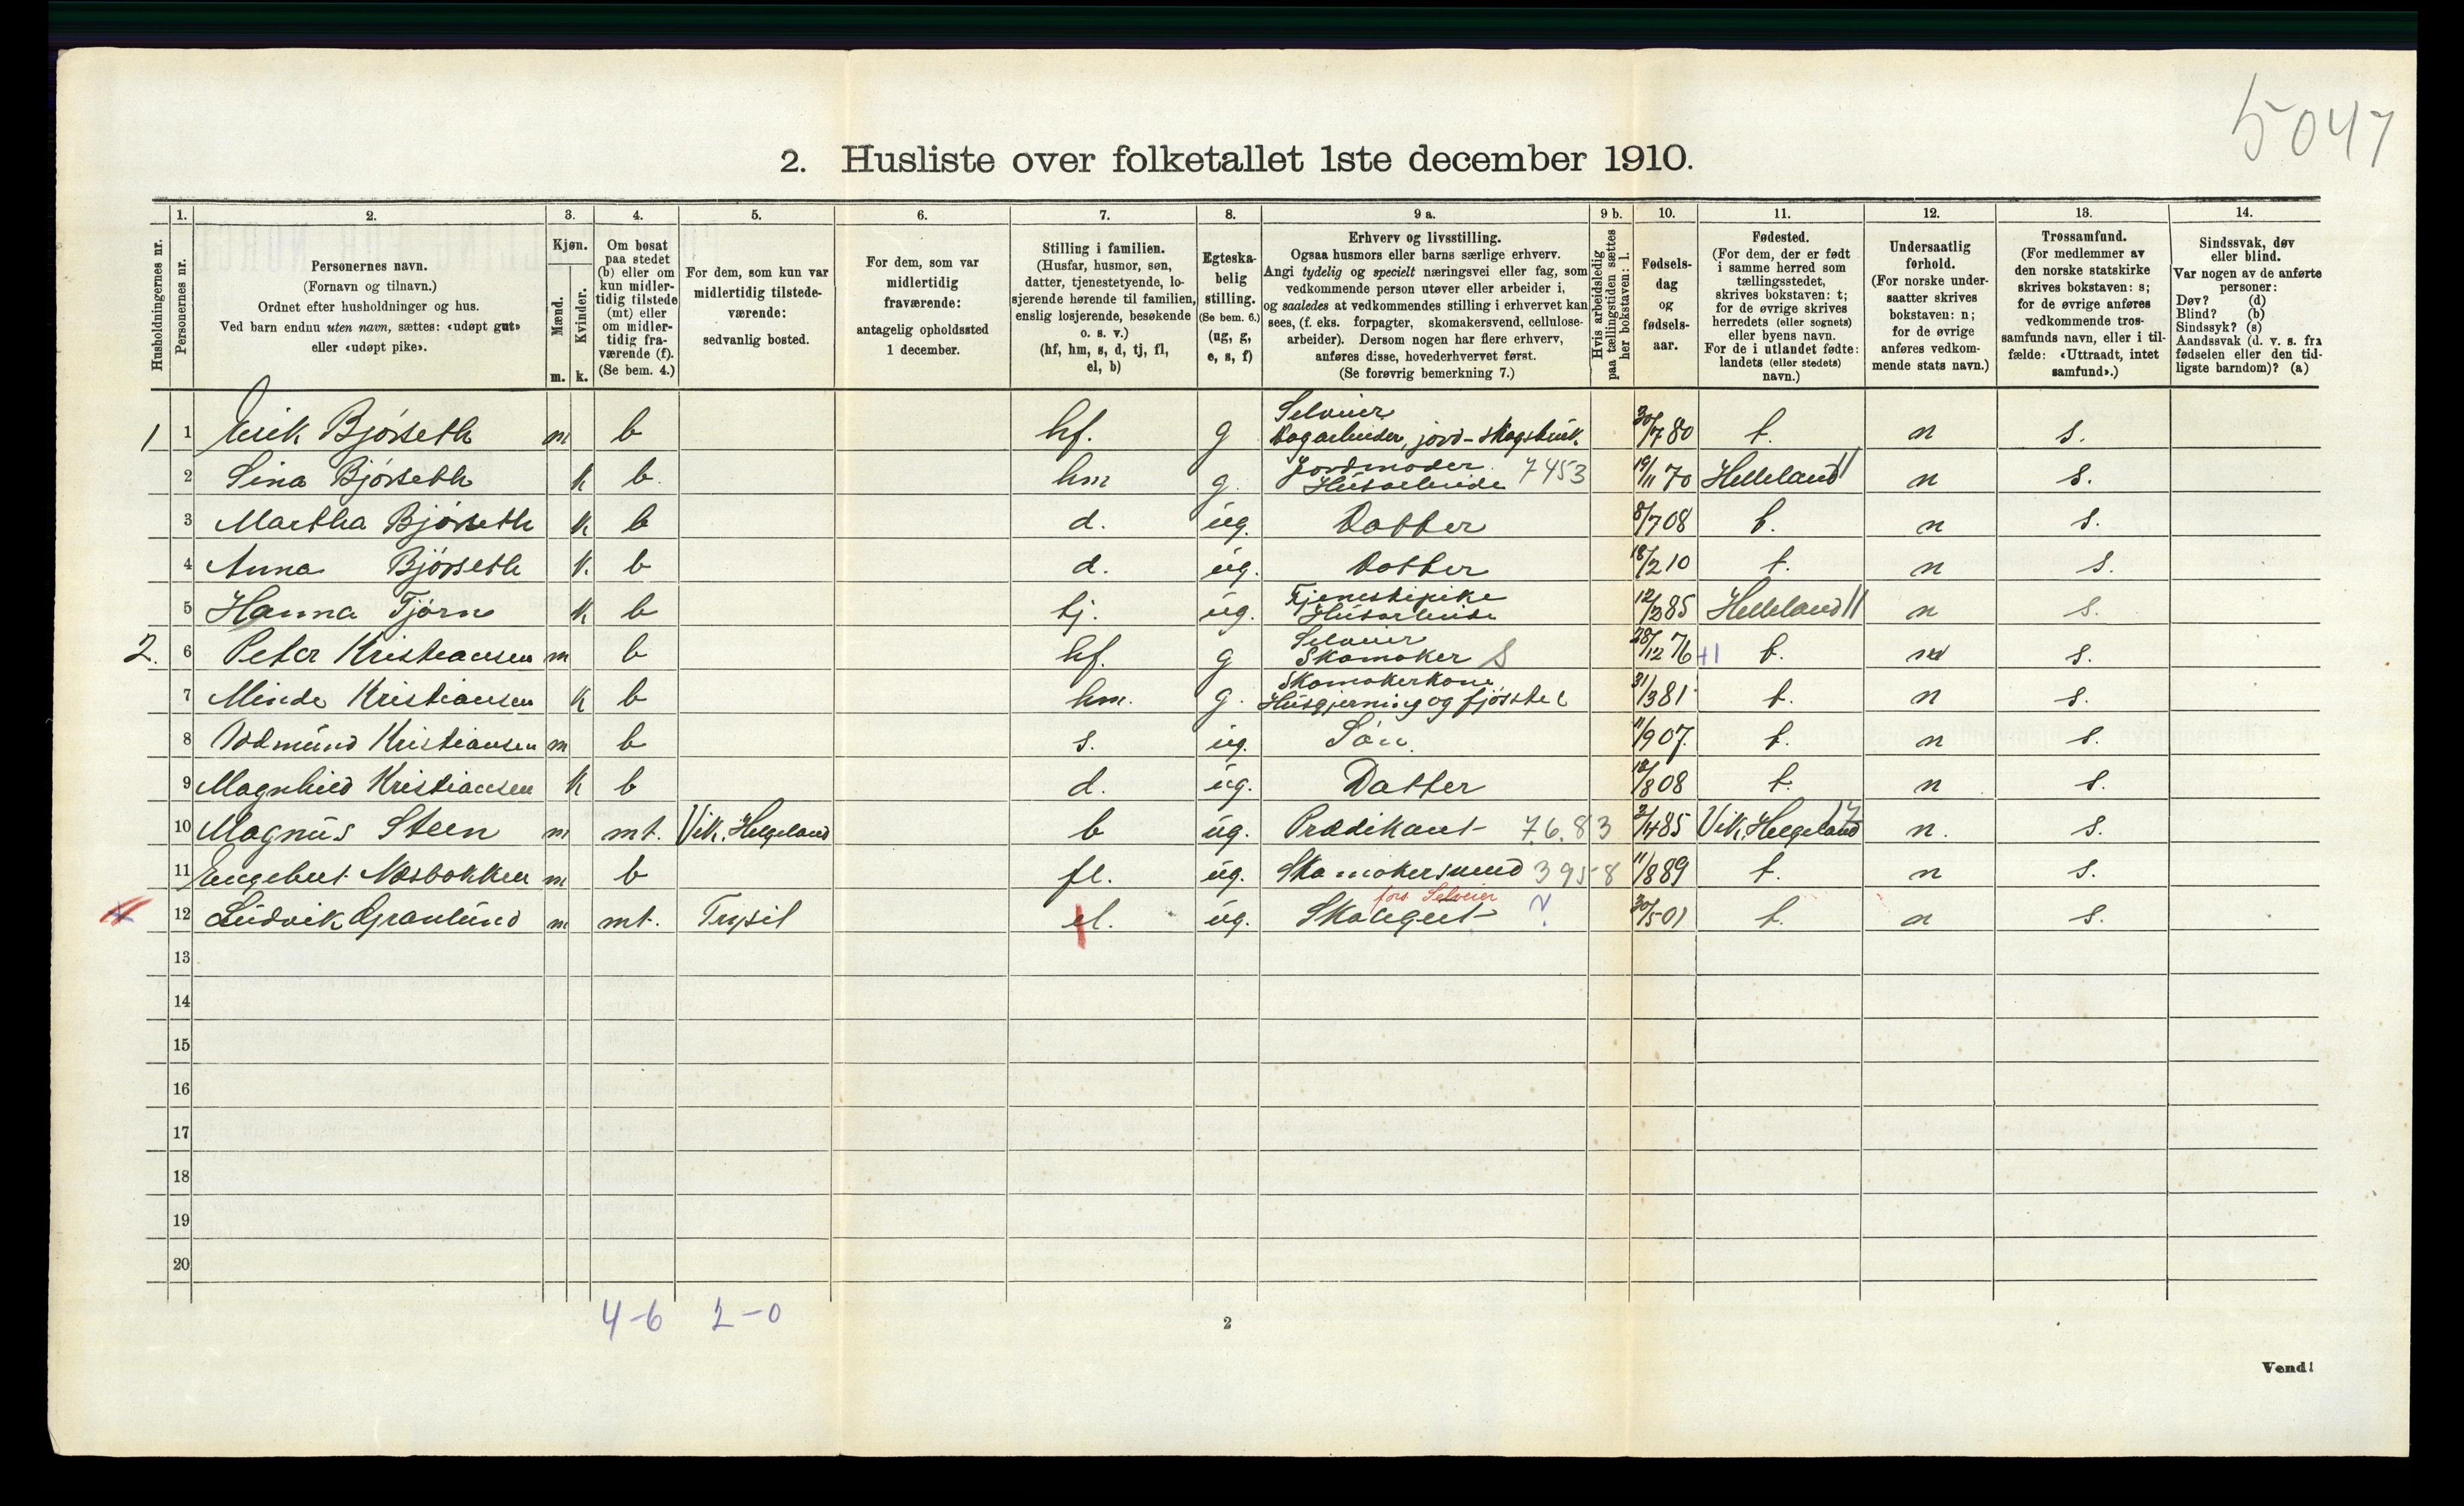 5047
2. Husliste over folketallet 1ste december 1910.
Husholdningernes nr.
1.
Personernes nr.
2.
Personernes navn.
(Fornavn og tilnavn.)
Ordnet efter husholdninger og hus.
Ved barn endnu uten navn, sættes: «udøpt gut»
eller «udøpt pike».
3.
Kjøn.
Mænd.
Kvinder.
m. k.
4.
Om bosat
paa stedet
(b) eller om
kun midler-
tidig tilstede
(mt) eller
om midler-
tidig fra-
værende (f).
(Se bem. 4.)
5.
For dem, som kun var
midlertidig tilstede-
værende:
sedvanlig bosted.
6.
For dem, som var
midlertidig
fraværende:
antagelig opholdssted
1 december.
7.
Stilling i familien.
(Husfar, husmor, søn,
datter, tjenestetyende, lo-
sjerende hørende til familien,
enslig losjerende, besøkende
o. s. v.)
(hf, hm, s, d, tj, fl,
el, b)
8.
Egteska-
belig
stilling.
(Se bem. 6.)
(ug, g,
e, s, f)
9 a.
Erhverv og livsstilling.
Ogsaa husmors eller barns særlige erhverv.
Angi tydelig og specielt næringsvei eller fag, som
vedkommende person utøver eller arbeider i,
og saaledes at vedkommendes stilling i erhvervet kan
sees, (f. eks. forpagter, skomakersvend, cellulose-
arbeider). Dersom nogen har flere erhverv,
anføres disse, hovederhvervet først.
(Se forøvrig bemerkning 7.)
9 b.
Hvis arbeidsledig
paa tællingstiden sættes
her bokstaven: l.
10.
Fødsels-
dag
og
fødsels-
aar.
11.
Fødested.
(For dem, der er født
i samme herred som
tællingsstedet,
skrives bokstaven: t;
for de øvrige skrives
herredets (eller sognets)
eller byens navn.
For de i utlandet fødte:
landets (eller stedets)
navn.)
12.
Undersaatlig
forhold.
(For norske under-
saatter skrives
bokstaven: n;
for de øvrige
anføres vedkom-
mende stats navn.)
13.
Trossamfund.
(For medlemmer av
den norske statskirke
skrives bokstaven: s;
for de øvrige anføres
vedkommende tros-
samfunds navn, eller i til-
fælde: «Uttraadt, intet
samfund».)
14.
Sindssvak, døv
eller blind.
Var nogen av de anførte
personer:
Døv? (d)
Blind? (b)
Sindssyk? (s)
Aandssvak (d. v. s. fra
fødselen eller den tid-
ligste barndom)? (a)
Selveier
1 1 Erik Bjørseth m b hf. g Dagarbeider, jord-skogsbruk. 30/7 80 t. n s.
Jordmoder 7453
2 Sina Bjørseth k b. hm g. Husarbeide 19/11 70 Helleland n s.
3 Martha Bjørseth k b d. ug. Datter 8/7 08 t. n s.
4 Anna Bjørseth k. b d. ug. Datter 18/2 10 t. n s.
Tjenestepike
5 Hanna Tjørn k b tj. ug. Husarbeide 12/3 85 Helleland n s.
Selveier
2. 6 Peter Kristiansen m b hf. g Skomaker S 28/12 76 +1 t. n s.
Skomakerkone
7 Minda Kristiansen k b hm. g. Husgjerning og fjøsstel 31/3 81 t. n s.
8 Oddmund Kristiansen m b s. ug. Søn. 11/9 07. t. n s.
9 Magnhild Kristiansen k b d. ug. Datter 12/8 08 t. n s.
10 Magnus Steen m mt. Vik, Helgeland b ug. Prædikant 7683 2/4 85 Vik, Helgeland 17 n. s.
11 Engebret Næsbakken m b fl. ug. Skomakersvend 3958 11/8 89 t. n s.
fors Selveier
12 Ludvik Granlund m mt. Trysil el. ug. Skolegut ? 30/5 01 t. n s.
13
14
15
16
17
18
19
20
4-6 2-0
2
Vend!